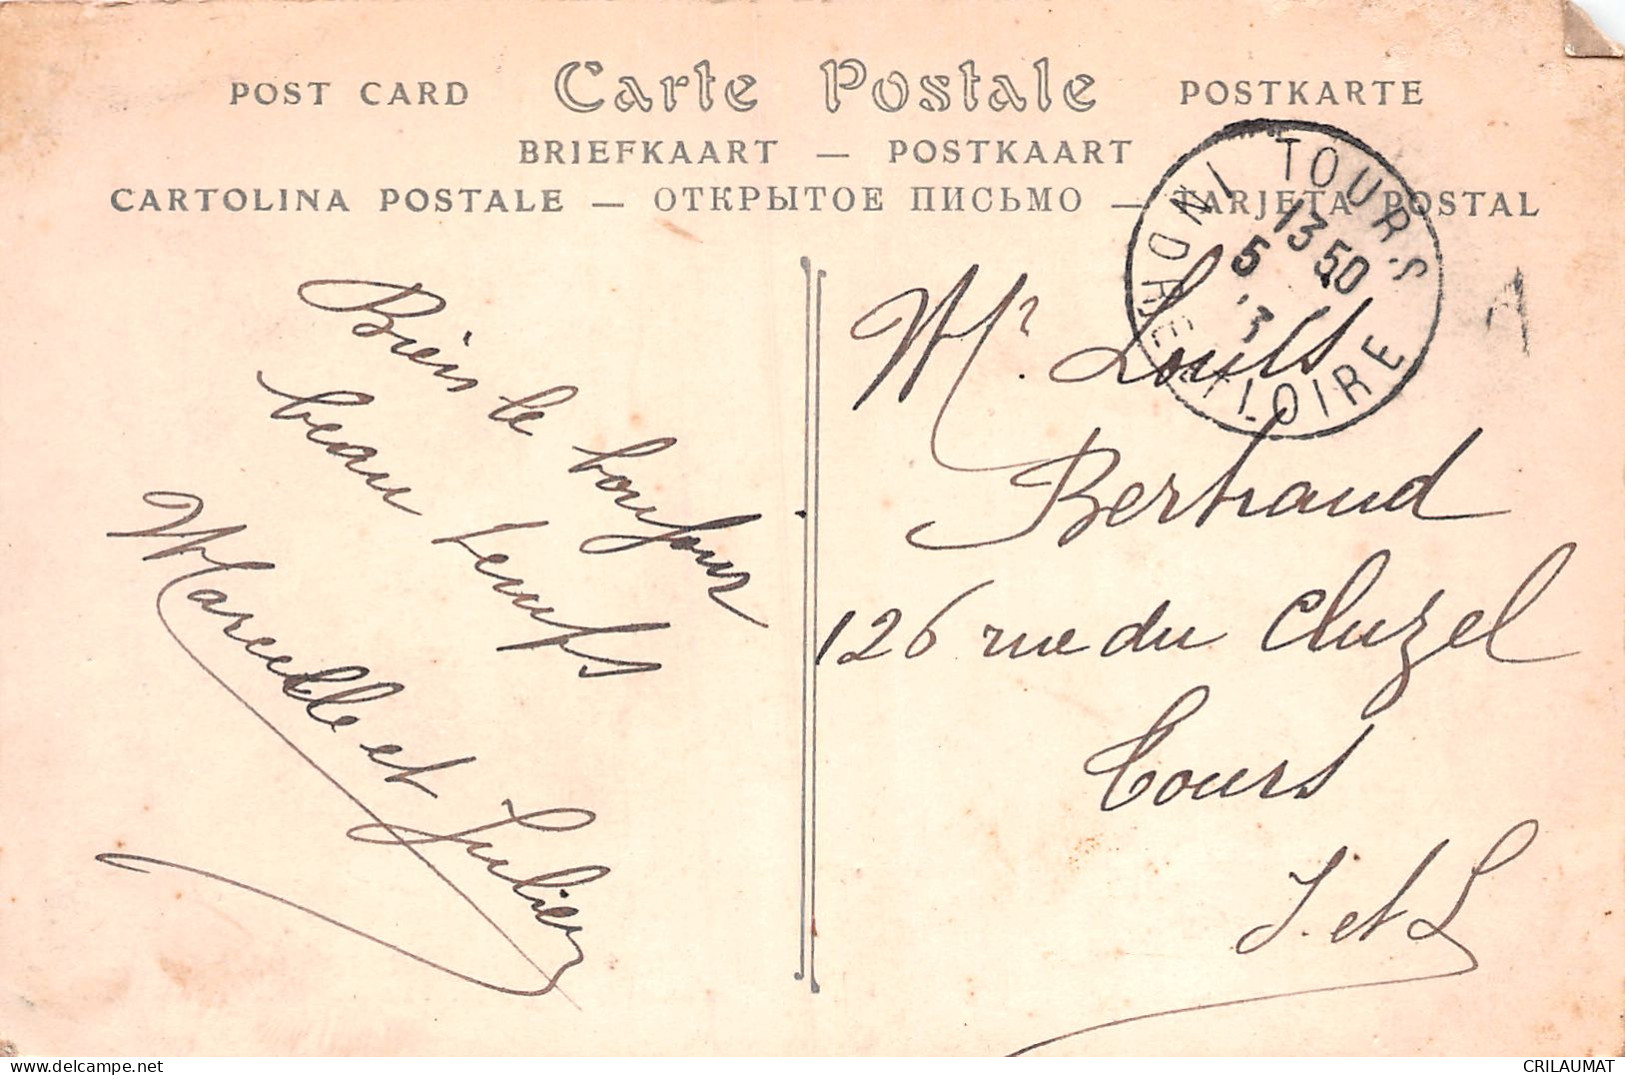 POST CARD Carte Postale POSTKARTE
BRIEFKAART — POSTKAART
CARTOLINA POSTALE — ОТКРЫТОЕ ПИСЬМО — TARJETA POSTAL
TOURS
13 50
5
3
INDRE ET LOIRE
Bien le bonjour
beau temps
Marcelle et Julien
Mr. Louis
Bertrand
126 rue du Cluzel
Tours
I. et L
CRILAUMAT